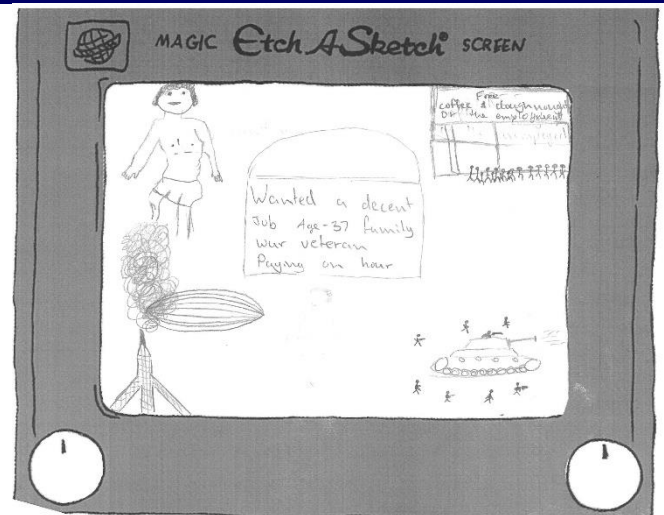 MAGIC Etch A Sketch® SCREEN
Free
coffee & doughnuts
the
Wanted a decent
Job Age-37 family
war veteran
Paying on hour